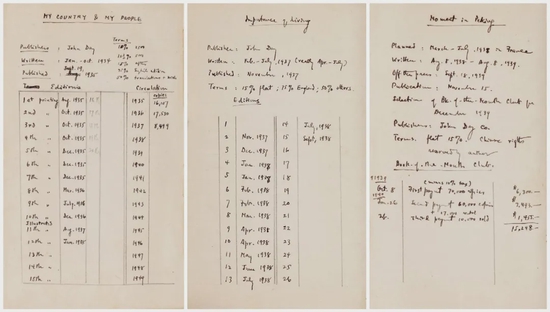 MY COUNTRY & MY PEOPLE
Publisher : John Day
Written : Jan - Oct. 1934
Published : Sept. 1935
Terms
10%
Terms Editions
Circulation
1st printing Aug. 1935
2nd " Oct. 1935
3rd " Oct. 1935
4th " Oct. 1935
5th " Dec. 1935
6th " Dec. 1935
7th " Dec. 1935
8th " Mar. 1936
9th " July, 1936
10th " Dec. 1936
Illustrated
11th " Aug. 1937
12th " Jan. 1938
13th "
14th "
15th "
1935
1936 17,520
1937 8,499
1938
1939
1940
1941
1942
1943
1944
1945
1946
1947
1948
1949
Importance of Living
Publisher : John Day
Written : Feb.-July, 1937 (really Apr.-July)
Published : November, 1937
Terms : 15% flat ; 15% England ; 50% others.
Editions
1
2 Nov. 1937
3 Dec. 1937
4 Jan 1938
5 Jan 1938
6 Feb. 1938
7 Feb. 1938
8 Mar. 1938
9 Apr. 1938
10 Apr. 1938
11 May 1938
12 June 1938
13 July 1938
14 July, 1938
15 Sept, 1938
16
17
18
19
20
21
22
23
24
25
26
Moment in Peking
Planned : March - July, 1938 in France
Written : Aug. 8, 1938 - Aug. 8, 1939.
Off the press : Sept. 18, 1939
Publication : November.
Selection of B-of-the-Month Club for
December 1939
Publishers : John Day Co.
Terms : flat 15%. Chinese rights
reserved by author
Book-of-the-Month Club.
1939
Oct. 8 First payment 70,000 copies
Second payt of 60,000 copies
26. Third payt